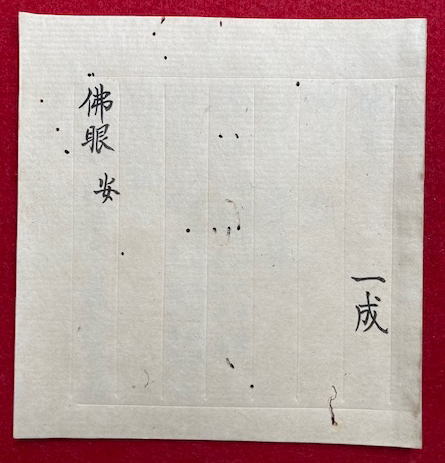 一成
佛眼 安